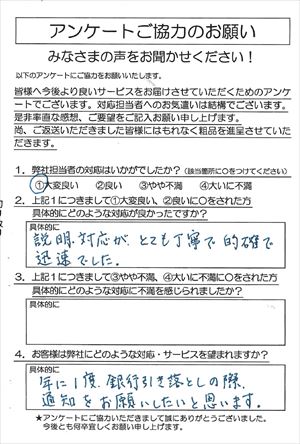 アンケートご協力のお願い
みなさまの声をお聞かせください!
以下のアンケートにご協力をお願いいたします。
皆様へ今後より良いサービスをお届けさせていただくためのアンケ
ートでございます。対応担当者へのお気遣いは結構でございます。
是非率直な感想、ご要望をご記入お願い申し上げます。
尚、ご返送いただきました皆様にはもれなく粗品を進呈させていた
だきます。
1．弊社担当者の対応はいかがでしたか?（該当箇所に○をつけてください）
①大変良い ②良い ③やや不満 ④大いに不満
2．上記１につきまして①大変良い、②良いに○をされた方
具体的にどのような対応が良かったですか?
具体的に
説明、対応が、とても丁寧で的確で
迅速でした。
3．上記１につきまして③やや不満、④大いに不満に○をされた方
具体的にどのような対応に不満を感じられましたか?
具体的に
4．お客様は弊社にどのような対応・サービスを望まれますか?
具体的に
年に1度、銀行引き落としの際、
通知をお願いしたいと思います。
★アンケートにご協力いただきまして誠にありがとうございました。
今後とも何卒宜しくお願い申し上げます。